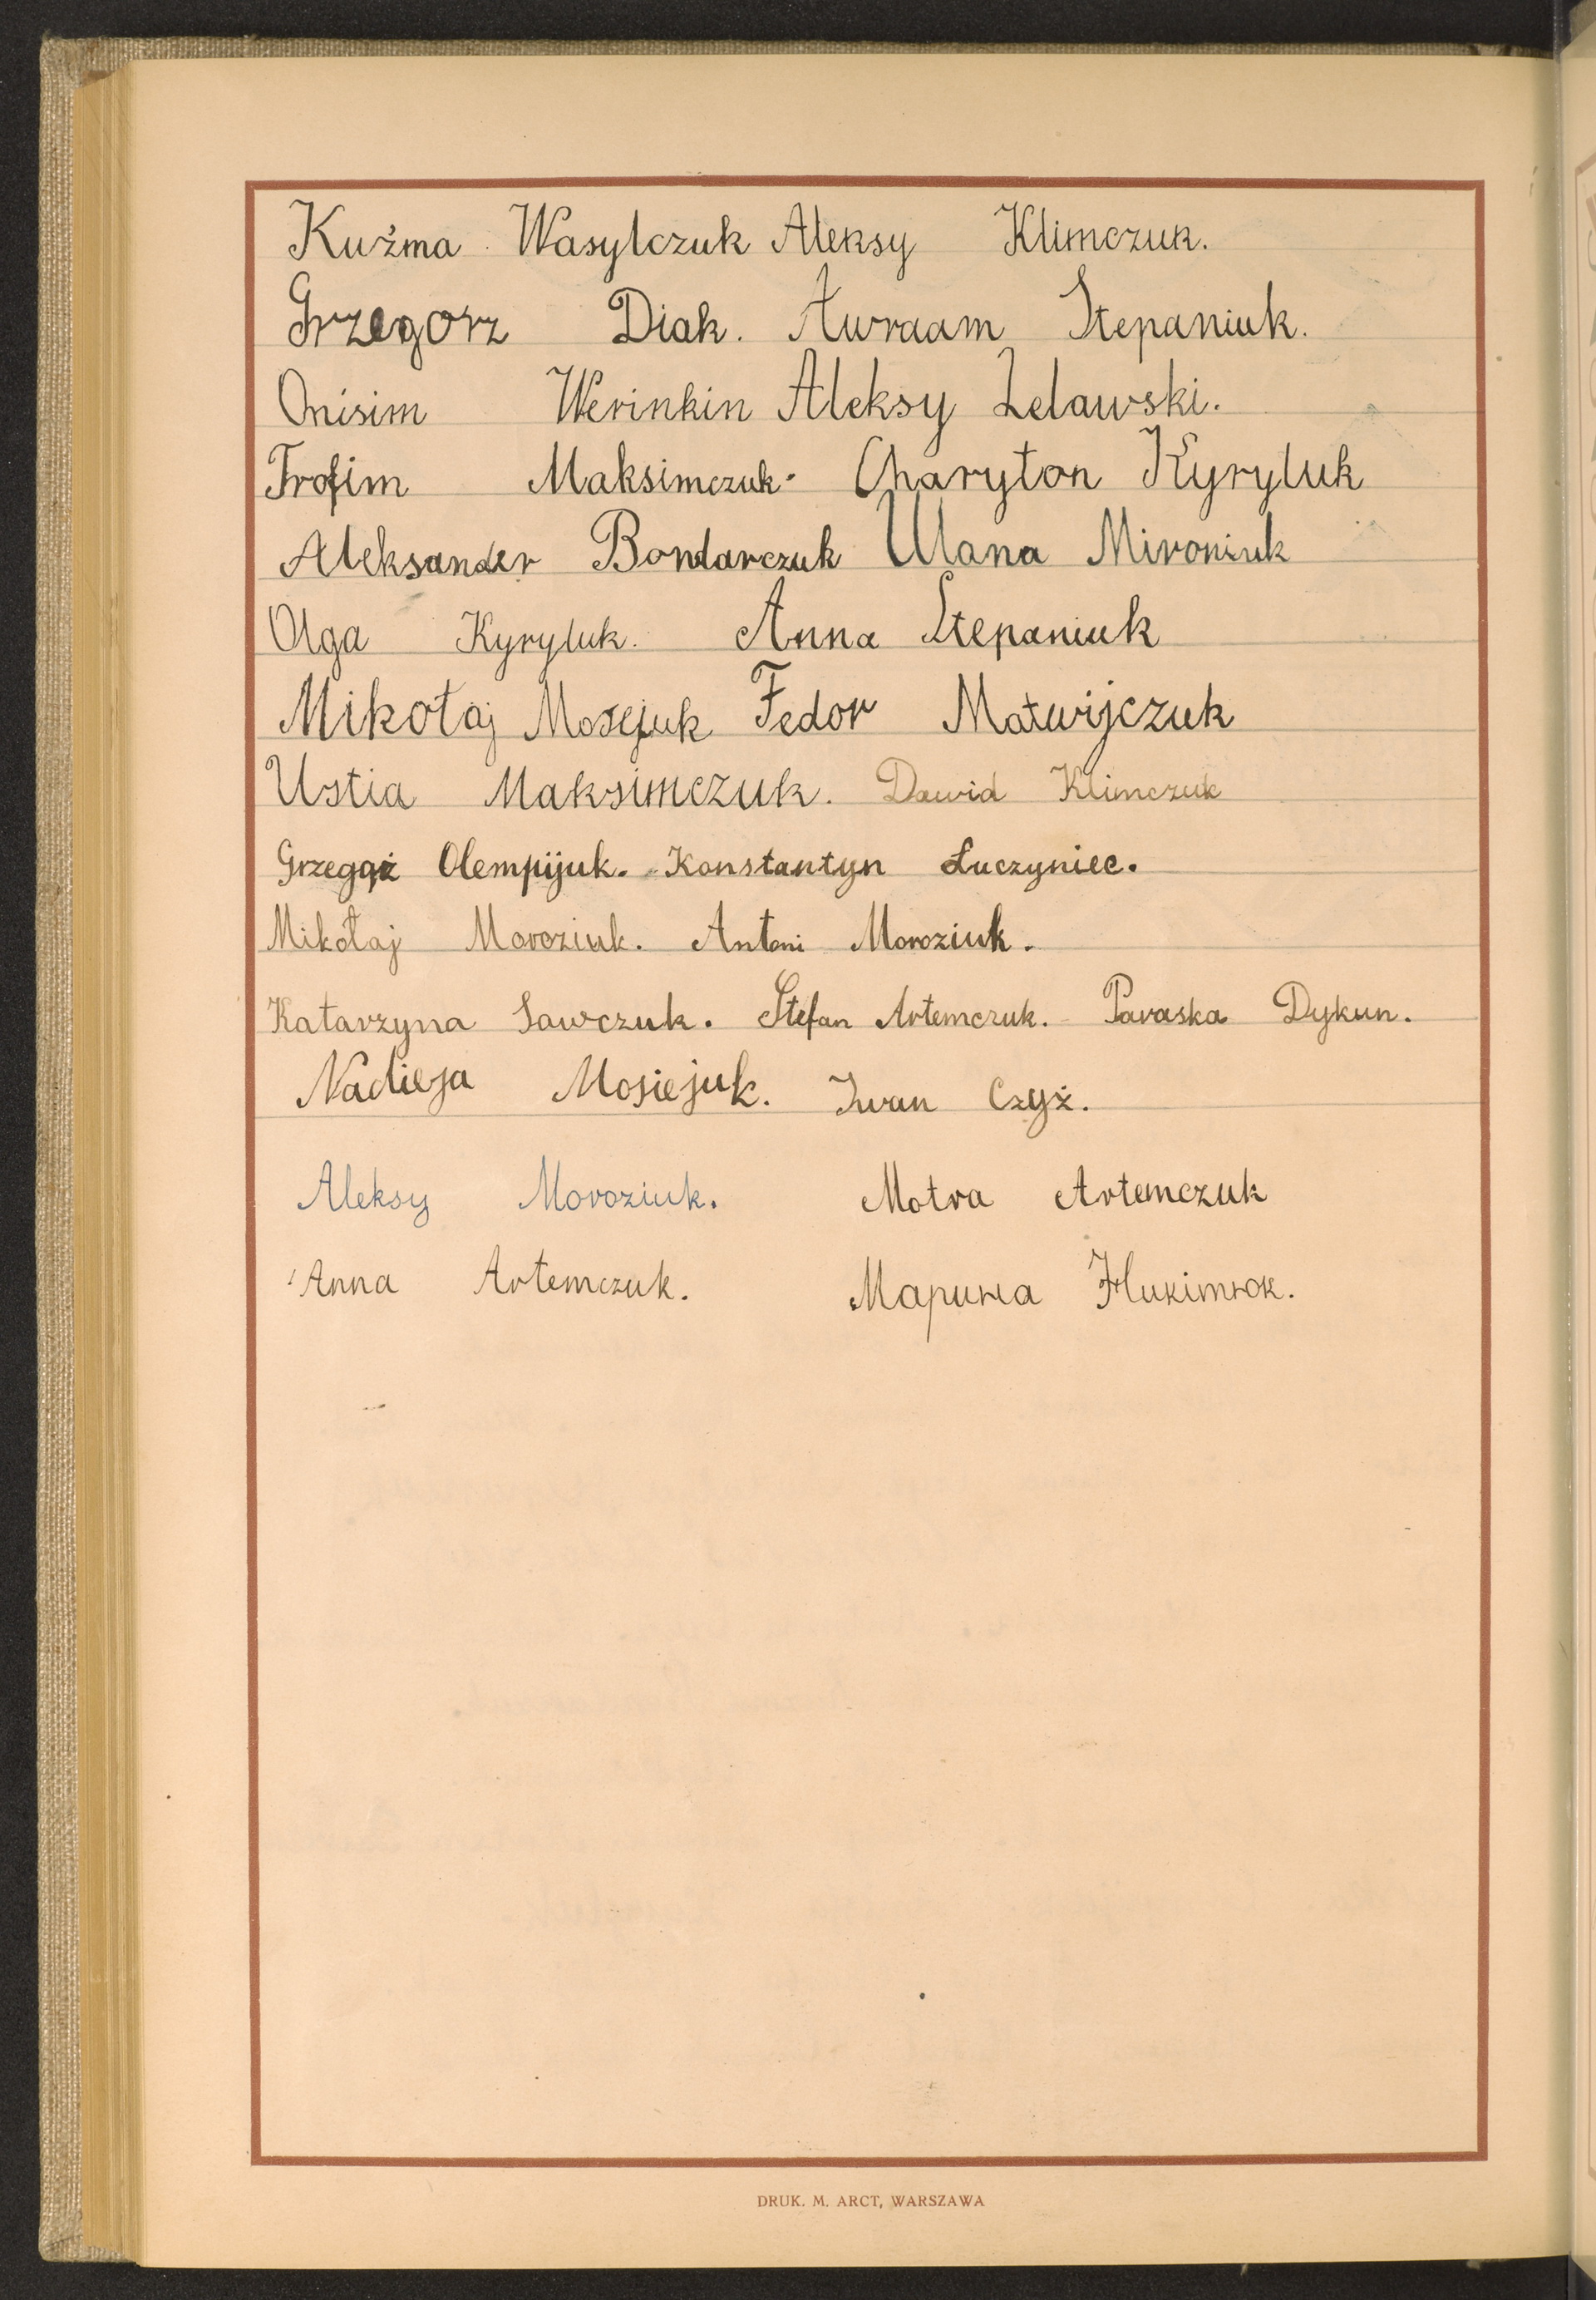 Kuźma Wasylczuk Aleksy Klimczuk.
Grzegorz Diak. Awraam Stepaniuk.
Onisim Werinkin Aleksy Lelawski.
Trofim Maksimczuk. Charyton Kyryluk
Aleksander Bondarczuk Ulana Mironiuk
Olga Kyryluk. Anna Stepaniuk
Mikołaj Mosejuk Fedor Matwijczuk
Ustia Maksimczuk. Dawid Klimczuk
Olempijuk. Konstantyn Łuczyniec.
Mikołaj Moroziuk. Antoni Moroziuk.
Katarzyna Sawczuk. Stefan Artemczuk. Paraska Dykun.
Nadieja Mosiejuk. Iwan Czyż.
Aleksy Moroziuk. Motra Artemczuk
Anna Artemczuk. Марина
DRUK. M. ARCT, WARSZAWA